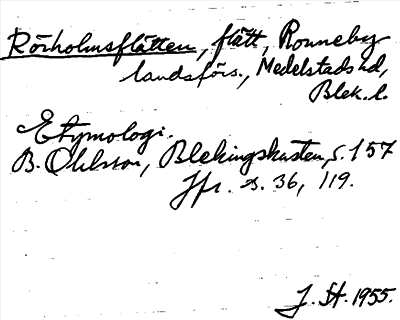 Rörholmsflätten, flätt, Ronneby
landsförs., Medelstads hd,
Blek. l.
Etymologi.
B. Ohlsson, Blekingskusten, s. 157
Jfr. s. 36, 119.
J. St. 1955.